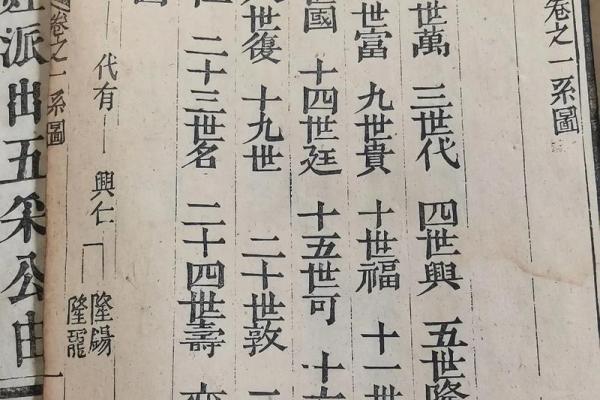 卷之一系圖
世萬 三世代 四世興 五世隆
世富 九世貴 十世福 十一世
國 十四世廷 十五世可 十
世復 十九世 二十世敦
二十三世名 二十四世壽
代有 興仁 隆錫
隆龍
卷之一系圖
派出五采公由